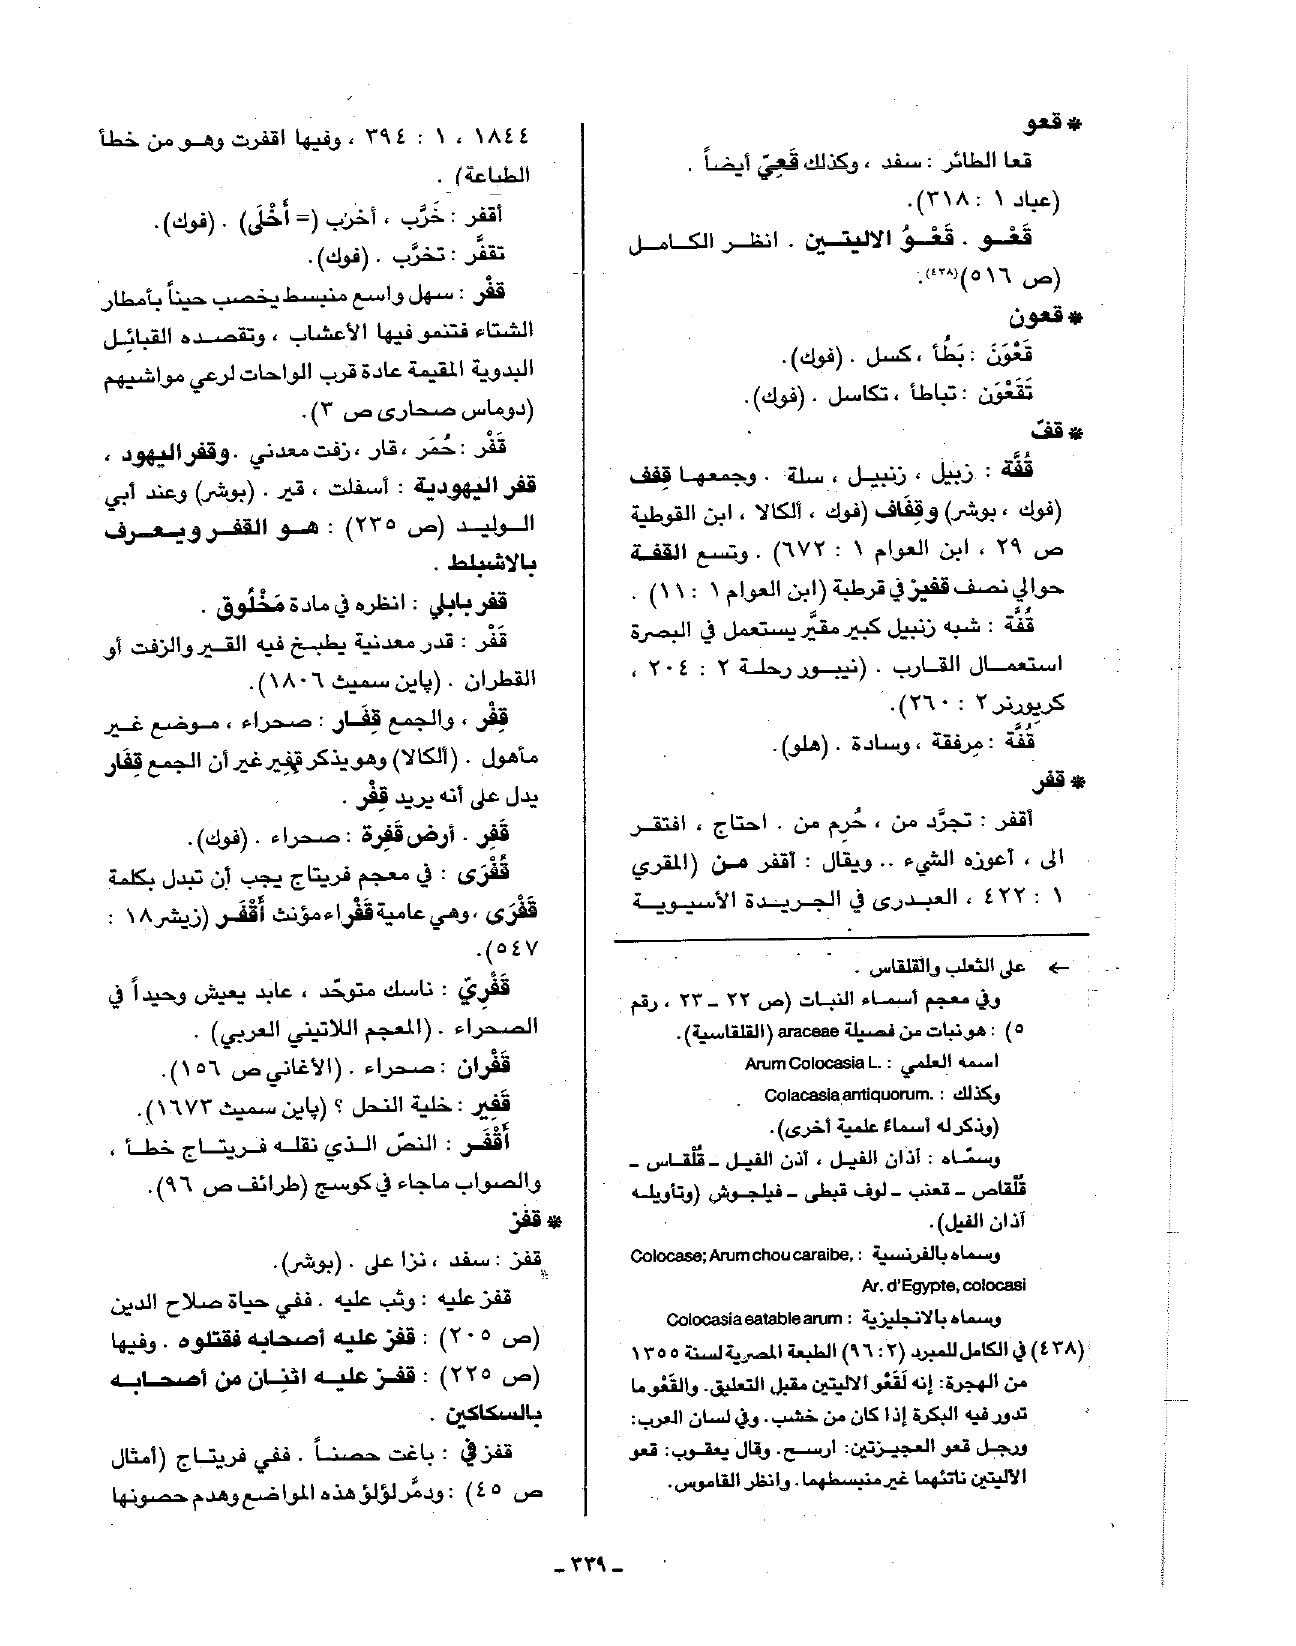 * قعو
قعا الطائر : سفد ، وكذلك قَعِيَ أيضاً .
(عباد ١ : ٣١٨).
قَعْو . قَعْوُ الاليتين . انظر الكامل
(ص ٥١٦)(٤٣٨).
* قعون
قَعْوَنَ : بَطُأ ، كسل . (فوك).
تَقَعْوَن : تباطأ ، تكاسل . (فوك).
* قفّ
قُفَّة : زبيل ، زنبيل ، سلة . وجمعها قِفف
(فوك ، بوشر) وقِفَاف (فوك ، ألكالا ، ابن القوطية
ص ٢٩ ، ابن العوام ١ : ٦٧٢) . وتسع القفة
حوالي نصف قفيز في قرطبة (ابن العوام ١ : ١١) .
قُفَّة : شبه زنبيل كبير مقيَّر يستعمل في البصرة
استعمال القارب . (نيبور رحلة ٢ : ٢٠٤ ،
كريورنر ٢ : ٢٦٠).
قُفَّة : مِرفقة ، وسادة . (هلو).
* قفر
أقفر : تجرَّد من ، حُرِم من . احتاج ، افتقر
الى ، أعوزه الشيء .. ويقال : أقفر من (المقري
١ : ٤٢٢ ، العبدرى في الجريدة الأسيوية
← على الثعلب والقلقاس .
وفي معجم أسماء النبات (ص ٢٢ ــ ٢٣ ، رقم
٥) : هو نبات من فصيلة araceae (القلقاسية).
اسمه العلمي : Arum Colocasia L.
وكذلك : Colacasia antiquorum.
(وذكر له أسماءً علمية أخرى).
وسمّاه : آذان الفيل ، أذن الفيل ــ قُلْقاس ــ
قُلْقاص ــ قعنب ــ لوف قبطى ــ فيلجوش (وتأويله
آذان الفيل).
وسماه بالفرنسية : Colocase; Arum chou caraibe,
Ar. d'Egypte, colocasi
وسماه بالانجليزية : Colocasia eatable arum
(٤٣٨) في الكامل للمبرد (٢ : ٩٦) الطبعة المصرية لسنة ١٣٥٥
من الهجرة: إنه لَقَعْو الاليتين مقبل التعليق. والقَعْو ما
تدور فيه البكرة إذا كان من خشب. وفي لسان العرب:
ورجل قعو العجيزتين: ارسح. وقال يعقوب: قعو
الاليتين ناتئهما غير منبسطهما. وانظر القاموس.
١٨٤٤ ، ١ : ٣٩٤ ، وفيها اقفرت وهو من خطأ
الطباعة) .
أقفر : خَرَّب ، أخرب (= أَخْلَى) . (فوك).
تقفَّر : تخرَّب . (فوك).
قفْر : سهل واسع منبسط يخصب حيناً بأمطار
الشتاء فتنمو فيها الأعشاب ، وتقصده القبائل
البدوية المقيمة عادة قرب الواحات لرعي مواشيهم
(دوماس صحارى ص ٣).
قَفْر : حُمَر ، قار ، زفت معدني . وقفر اليهود ،
قفر اليهودية : أسفلت ، قير . (بوشر) وعند أبي
الوليد (ص ٢٣٥) : هو القفر ويعرف
بالاشبلط .
قفر بابلي : انظره في مادة مَخْلُوق .
قَفْر : قدر معدنية يطبخ فيه القير والزفت أو
القطران . (پاين سميث ١٨٠٦).
قِفْر ، والجمع قِفَار : صحراء ، موضع غير
مأهول . (ألكالا) وهو يذكر قفير غير أن الجمع قِفَار
يدل على أنه يريد قِفْر .
قَفِر . أرض قَفِرة : صحراء . (فوك).
قُفْرَى : في معجم فريتاج يجب أن تبدل بكلمة
قَفْرَى ، وهي عامية قَفْراء مؤنث أَقْفَر (زيشر ١٨ :
٥٤٧).
قَفْرِيّ : ناسك متوحّد ، عابد يعيش وحيداً في
الصحراء . (المعجم اللاتيني العربي) .
قَفْران : صحراء . (الأغاني ص ١٥٦).
قَفِير : خلية النحل ؟ (پاين سميث ١٦٧٣).
أَقْفَر : النصّ الذي نقله فريتاج خطأ ،
والصواب ماجاء في كوسج (طرائف ص ٩٦).
* قفز
قفز : سفد ، نزا على . (بوشر).
قفز عليه : وثب عليه . ففي حياة صلاح الدين
(ص ٢٠٥) : قفز عليه أصحابه فقتلوه . وفيها
(ص ٢٢٥) : قفز عليه اثنان من أصحابه
بالسكاكين .
قفز في : باغت حصناً . ففي فريتاج (أمثال
ص ٤٥) : ودمَّر لؤلؤ هذه المواضع وهدم حصونها
ــ ٣٣٩ ــ